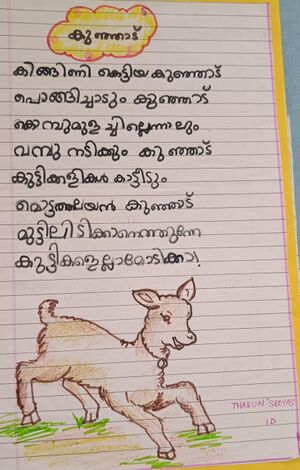 കുഞ്ഞാട്
കിങ്ങിണി കെട്ടിയ കുഞ്ഞാട്
പൊങ്ങിച്ചാടും കുഞ്ഞാട്
കൊമ്പുമുള ച്ചില്ലെന്നാലും
വമ്പു നടിക്കും കുഞ്ഞാട്
കുട്ടിക്കളികൾ കാട്ടീടും
മൊട്ടത്തലയൻ കുഞ്ഞാട്
മുട്ടിലിടിക്കാനെത്തുന്നേ
കുട്ടികളെല്ലാമോടിക്കോ!
THARUN SREYAS
1D